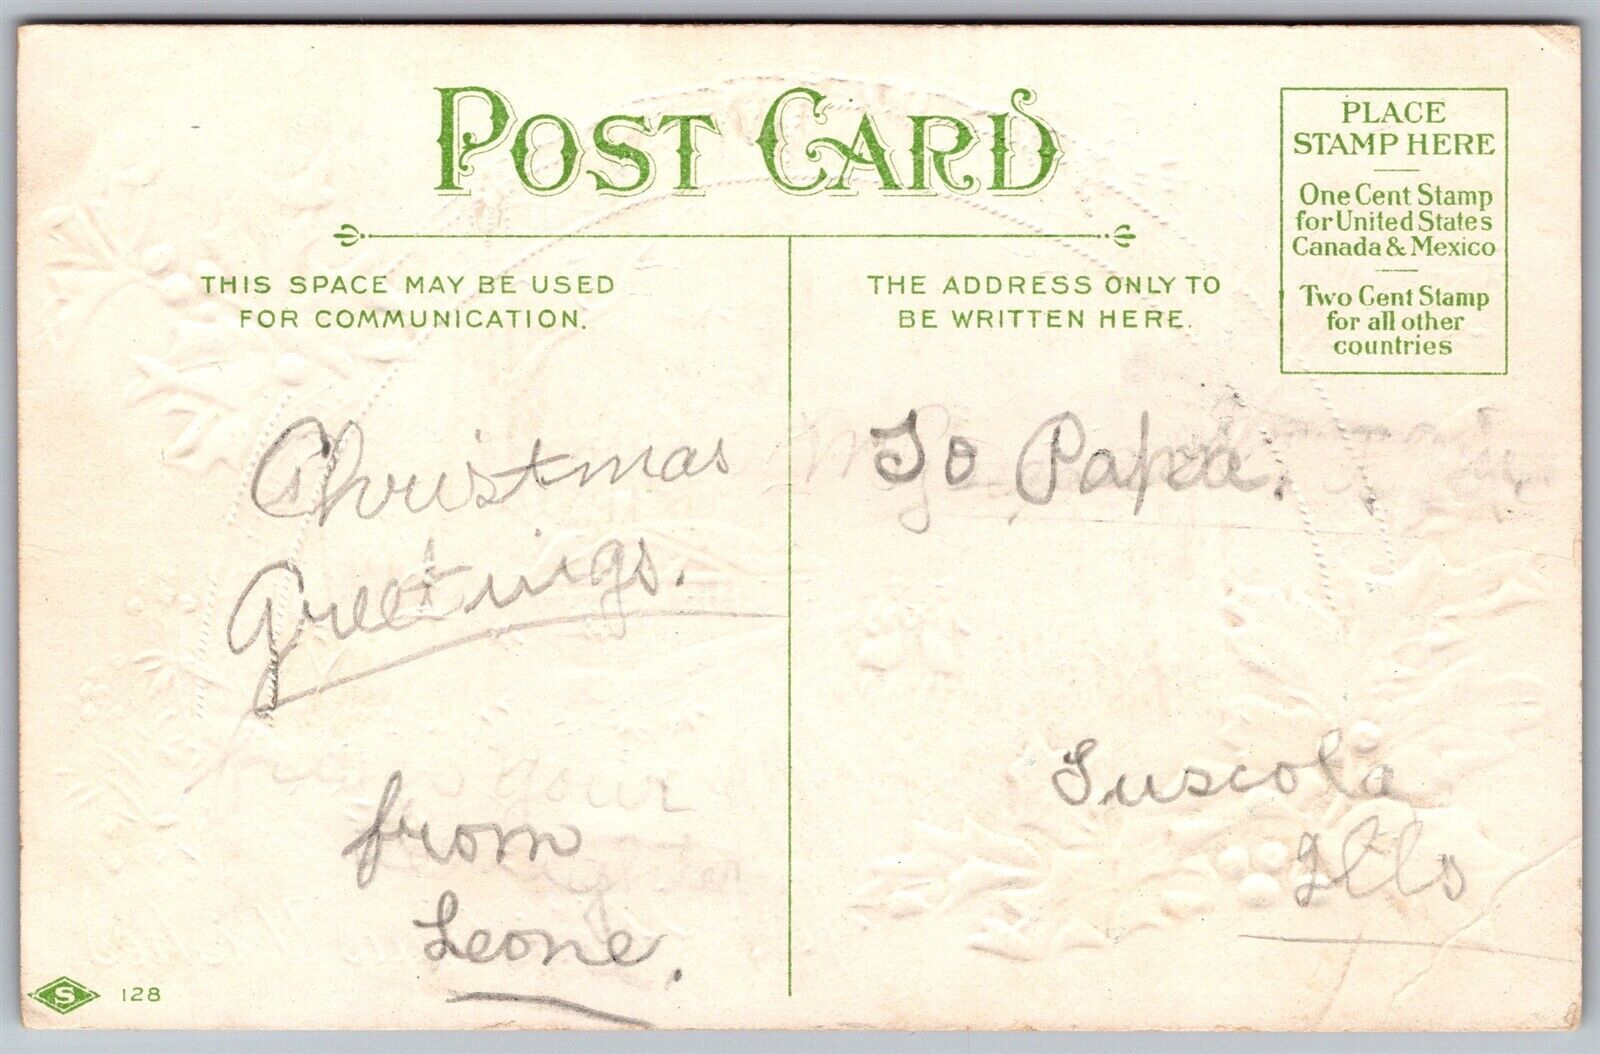 POST CARD
PLACE
STAMP HERE
One Cent Stamp
for United States
Canada & Mexico
Two Cent Stamp
for all other
countries
THIS SPACE MAY BE USED
FOR COMMUNICATION.
THE ADDRESS ONLY TO
BE WRITTEN HERE.
Christmas
Greetings.
from your
from
Leone.
To Papa.
Tuscola
Ills
S 128